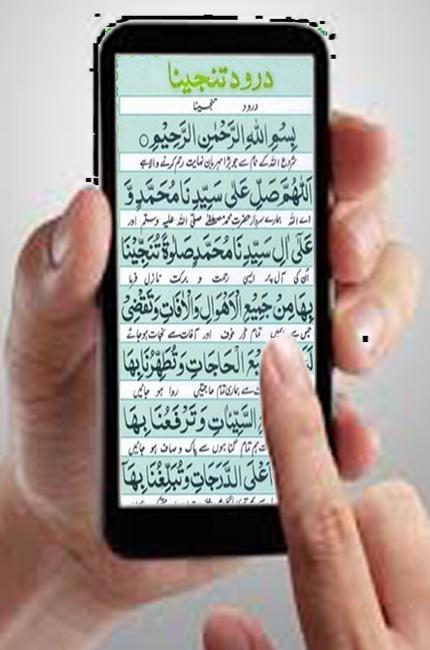 درود تنجینا
درود تنجینا
بِسْمِ اللهِ الرَّحْمٰنِ الرَّحِيْمِ
شروع اللہ کے نام سے جو بڑا مہربان نہایت رحم کرنے والا ہے
اَللّٰهُمَّ صَلِّ عَلٰى سَيِّدِنَا مُحَمَّدٍ وَّ
اے اللہ ہمارے سردار حضرت محمد مصطفٰے صلی اللہ علیہ وسلم اور
عَلٰۤى اٰلِ سَيِّدِنَا مُحَمَّدٍ صَلٰوةً تُنَجِّيْنَا
اُن کی آل پر ایسی رحمت و برکت نازل فرما
بِهَا مِنْ جَمِيْعِ الْاَهْوَالِ وَالْاٰفَاتِ وَتَقْضِيْ
جس سے ہمیں تمام ڈر خوف اور آفات سے نجات ہو جائے
الْحَاجَاتِ وَتُطَهِّرُنَا بِهَا
سے ہماری تمام حاجتیں روا ہو جائیں
السَّيِّاٰتِ وَتَرْفَعُنَا بِهَا
ہم تمام گناہوں سے پاک و صاف ہو جائیں
اَعْلَى الدَّرَجَاتِ وَتُبَلِّغُنَا بِهَاۤ